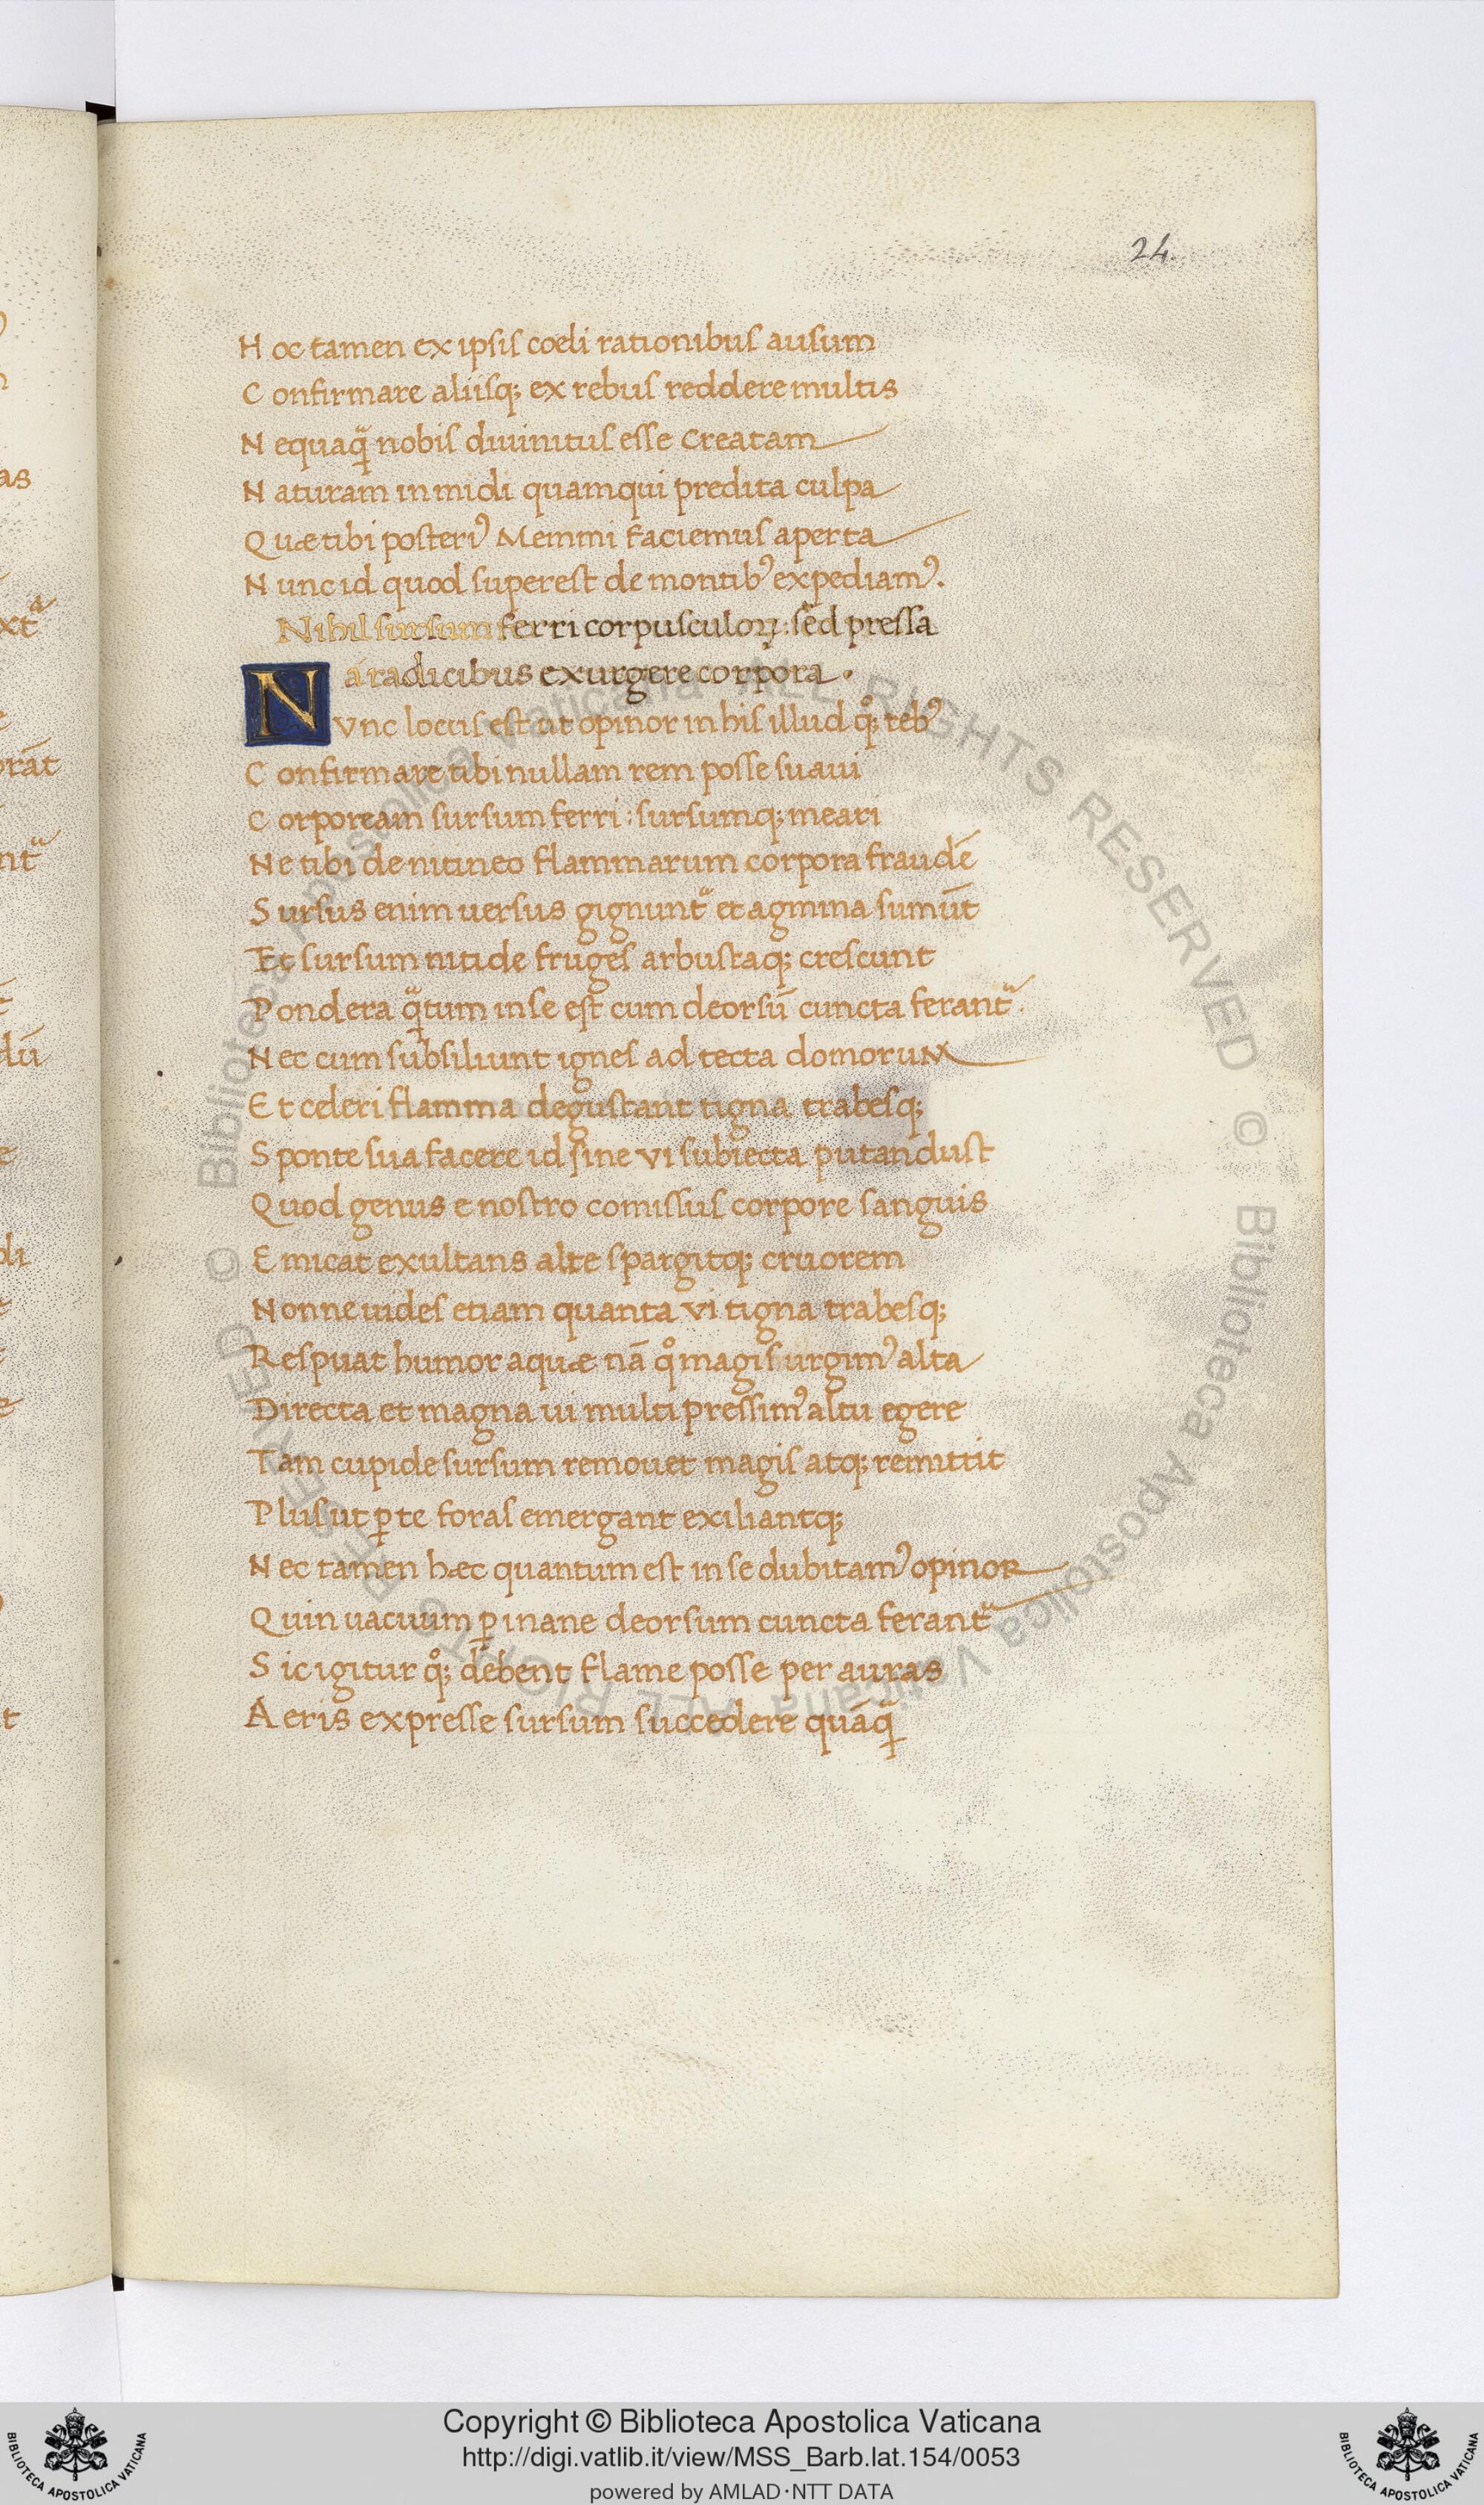 24.
H oc tamen ex ipsis coeli rationibus ausum
C onfirmare aliisq; ex rebus reddere multis
N equaq̃ nobis diuinitus esse creatam
N aturam in midi quamqui predita culpa
Q uæ tibi posteriꝰ Memmi faciemus aperta
N unc id quod superest de montibꝰ expediamꝰ.
Nihil sursum ferri corpusculoꝝ: sed pressa
a radicibus exurgere corpora.
N
vnc locus est ut opinor in his illud qͦ; rebꝰ
C onfirmare tibi nullam rem posse suaui
C orpoream sursum ferri: sursumq; meari
Ne tibi de nitineo flammarum corpora fraudē
S ursus enim uersus gignuntᷣ et agmina sumūt
Et sursum nitide fruges arbustaq; crescunt
P ondera q̃tum in se est cum deorsū cuncta ferantᷣ.
Nec cum subsiliunt ignes ad tecta domorum
E t celeri flamma degustant tigna trabesq;
S ponte sua facere id sine vi subiecta putandust
Quod genus e nostro comissus corpore sanguis
E micat exultans alte spargitq; cruorem
Nonne uides etiam quanta vi tigna trabesq;
Respuat humor aquæ nā qͦ magis urgimꝰ alta
Directa et magna ui multi pressimꝰ altu egere
Tam cupide sursum remouet magis atq; remittit
P lus ut ꝑte foras emergant exiliantq;
N ec tamen hæc quantum est in se dubitamꝰ opinor
Quin uacuum ꝑ inane deorsum cuncta ferantᷣ
S ic igitur qͦ; debent flame posse per auras
A eris expresse sursum succedere quāq̃
© Biblioteca Apostolica Vaticana ALL RIGHTS RESERVED © Biblioteca Apostolica Vaticana ALL RIGHTS RESERVED
Copyright © Biblioteca Apostolica Vaticana
http://digi.vatlib.it/view/MSS_Barb.lat.154/0053
powered by AMLAD·NTT DATA
BIBLIOTECA APOSTOLICA VATICANA
BIBLIOTECA APOSTOLICA VATICANA